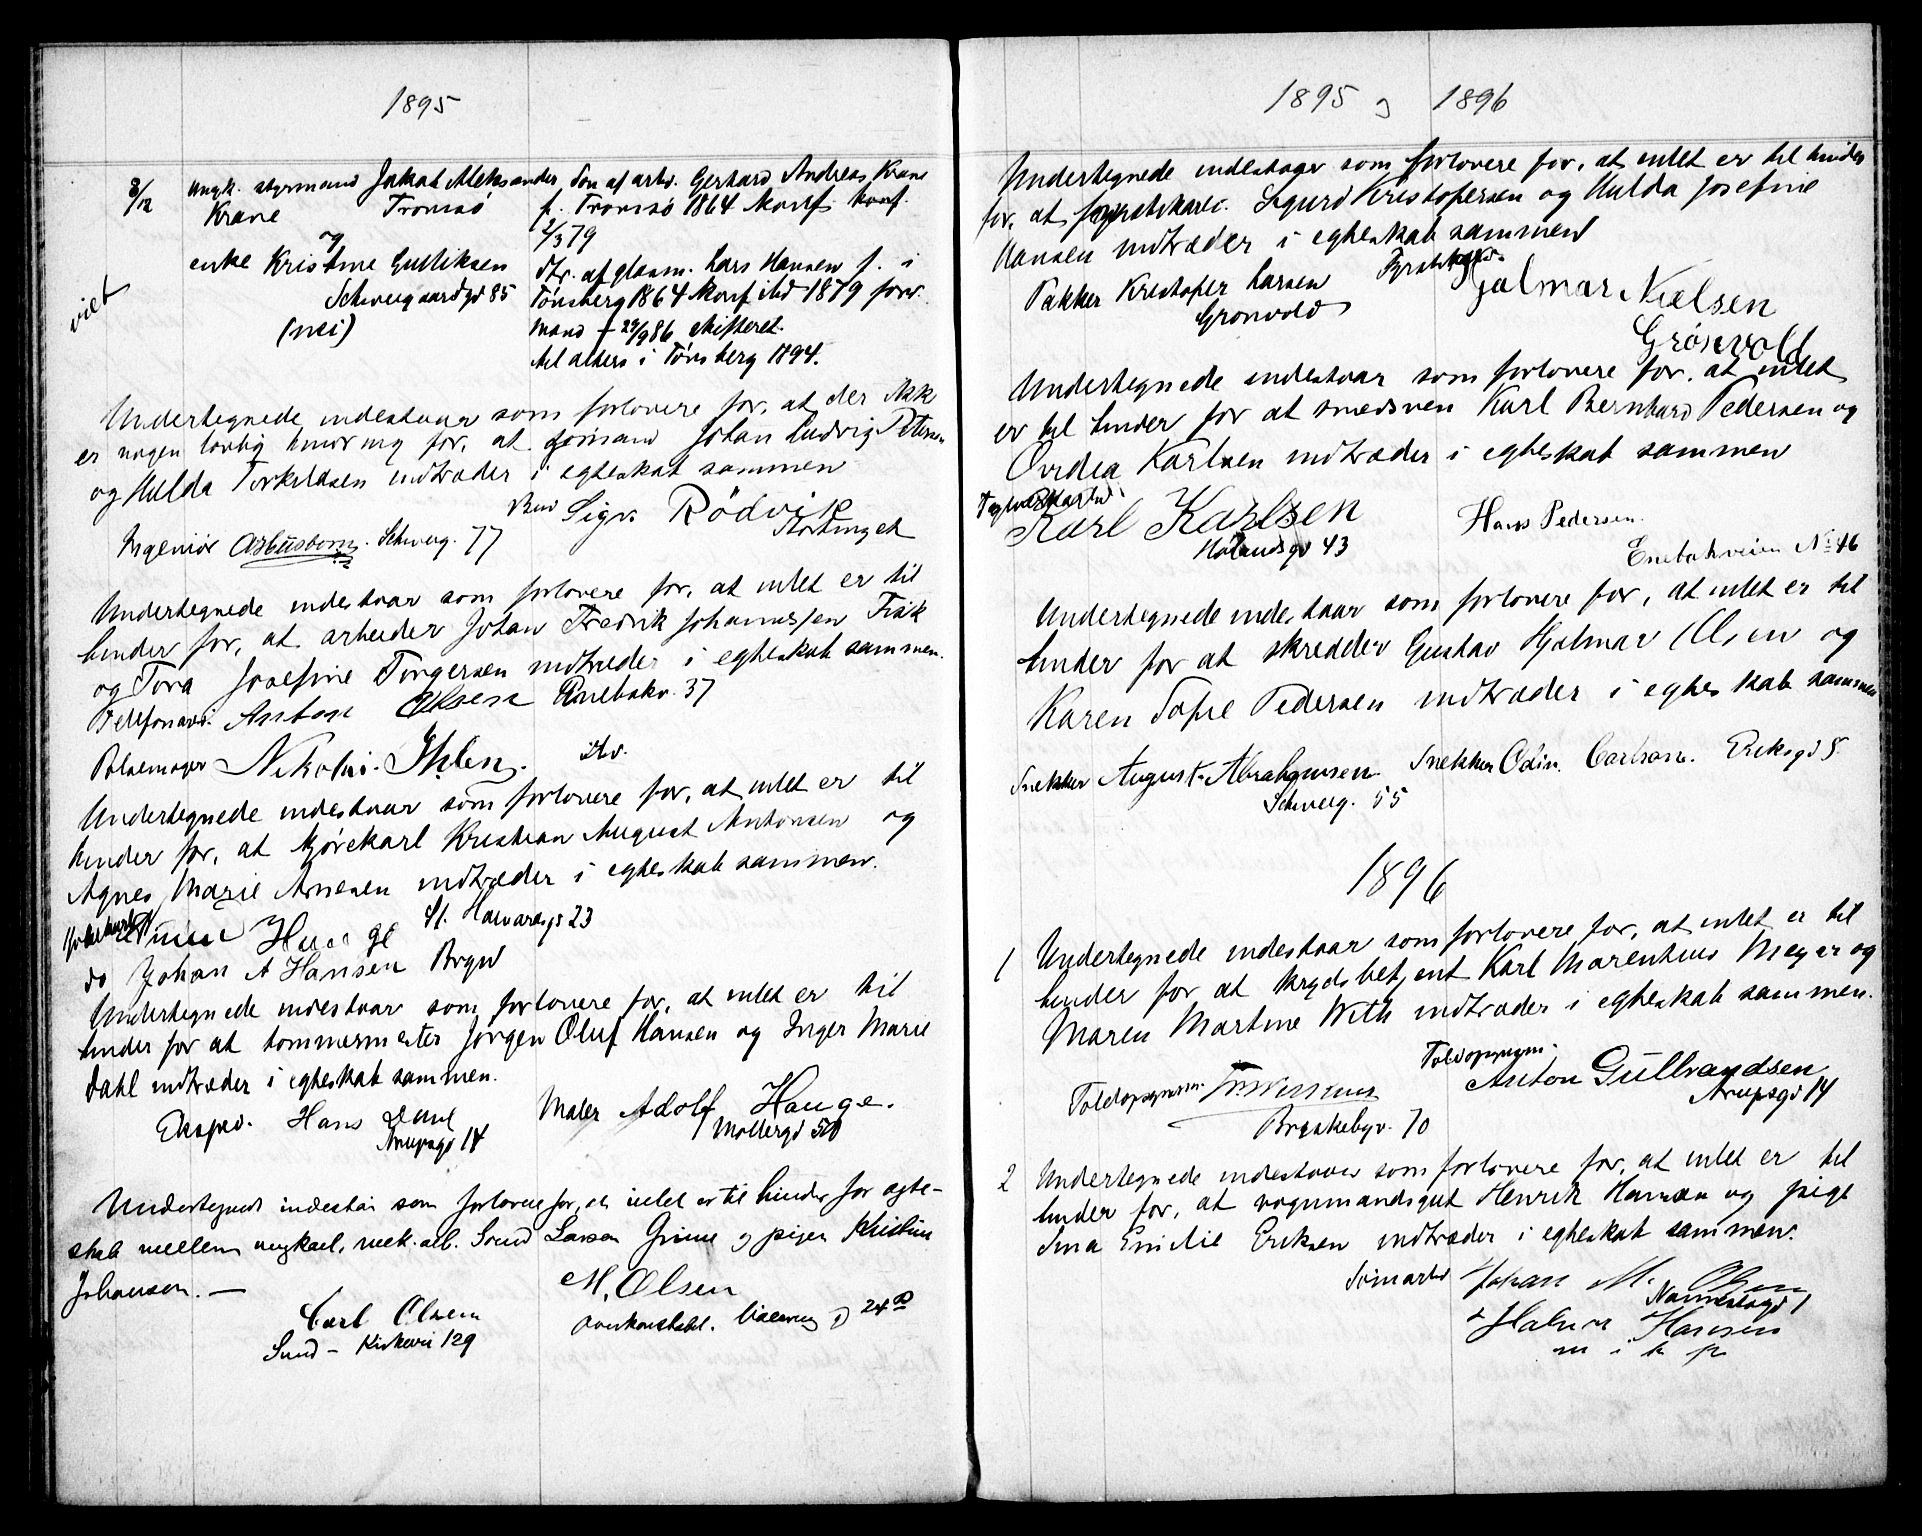 1895
8/12 Ungk. styrmand Jakob Aleksander, Søn af arbd. Gerhard Andreas Krane
Krane Tromsø f. Tromsø 1864 Konf.
og 2/3 79
enke Kristine Gulliksen Dtr. af glasm. Lars Hansen f. i
Schweigaardgd 85 Tønsberg 1864 Konf. ibd 1879 forr.
viet
(nei) mand † 29/9 86 skifteret.
i Tønsberg 1894.
Undertegnede indestaar som forlovere for, at der ikke
er nogen lovlig hindring for, at sømand Johan Ludvig Petersen
og Hulda Torkildsen indtræder i egteskab sammen
Ingeniør Schweig. 77 Bud Sigv. Rödvik
Stortinget
Undertegnede indestaar som forlovere for, at intet er til
hinder for, at arbeider Johan Fredrik Johannessen Fisk
og Tora Josefine Torgersen indtræder i egteskab sammen.
Telefonarb. Anton Olsen Enebakv. 37
Pølsemager Nikolai Ihlen. ibd.
Undertegnede indestaar som forlovere for, at intet er til
hinder for, at kjørekarl Kristian August Antonsen og
Agnes Marie Arnesen indtræder i egteskab sammen.
St. Halvardsgd 23
do Johan A Hansen Brgd
Undertegnede indestaar som forlovere for, at intet er til
hinder for at tømmermester Jørgen Oluf Hansen og Inger Marie
Dahl indtræder i egteskab sammen.
Eksped. Hans Dahl Maler Adolf Hauge.
Arupsgd 14 Møllergd 50
Undertegnede indestår som forlovere for, at intet er til hinder for ægte-
skab mellem ungkarl, mek. arb. Lars Grime og pigen Kristine
Johansen. —
Carl Olsen M. Olsen
Smed – Kirkevei 129 Overkonstabel. Vaalereng 24

1895 og 1896
Undertegnede indestaar som forlovere for, at intet er til hinder
for, at fyrstikarb. Sigurd Kristofersen og Hulda Josefine
Hansen indtræder i egteskab sammen
Pakker Kristofer Larsen Fyrstikarb. Hjalmar Nielsen
Grønvold Grønvold
Undertegnede indestaar som forlovere for, at intet
er til hinder for at smedsven Karl Bernhard Pedersen og
Ovidia Karlsen indtræder i egteskab sammen
Karl Karlsen Hans Pedersen.
Hølandsgd 43 Enebakveien No 46
Undertegnede indestaar som forlovere for, at intet er til
hinder for at skredder Gustav Hjalmar Olsen og
Karen Sofie Pedersen indtræder i egteskab sammen
Snekker August Abrahamsen. Snekker Odin Carlson. Eriksgd 5
Schweig. 55
1896
1 Undertegnede indestaar som forlovere for, at intet er til
hinder for at krydsbetjent Karl Marentius Meyer og
Maren Martine With indtræder i egteskab sammen.
Toldopsynsm. Toldopsynsm. Anton Gulbrandsen
Briskebyv. 70 Arupsgd 14
2 Undertegnede indestaar som forlovere for, at intet er til
hinder for, at vognmandsgut Henrik Hansen og pige
Ina Emilie Eriksen indtræder i egteskab sammen.
Johan M. Olsen
Hansen
m i h p